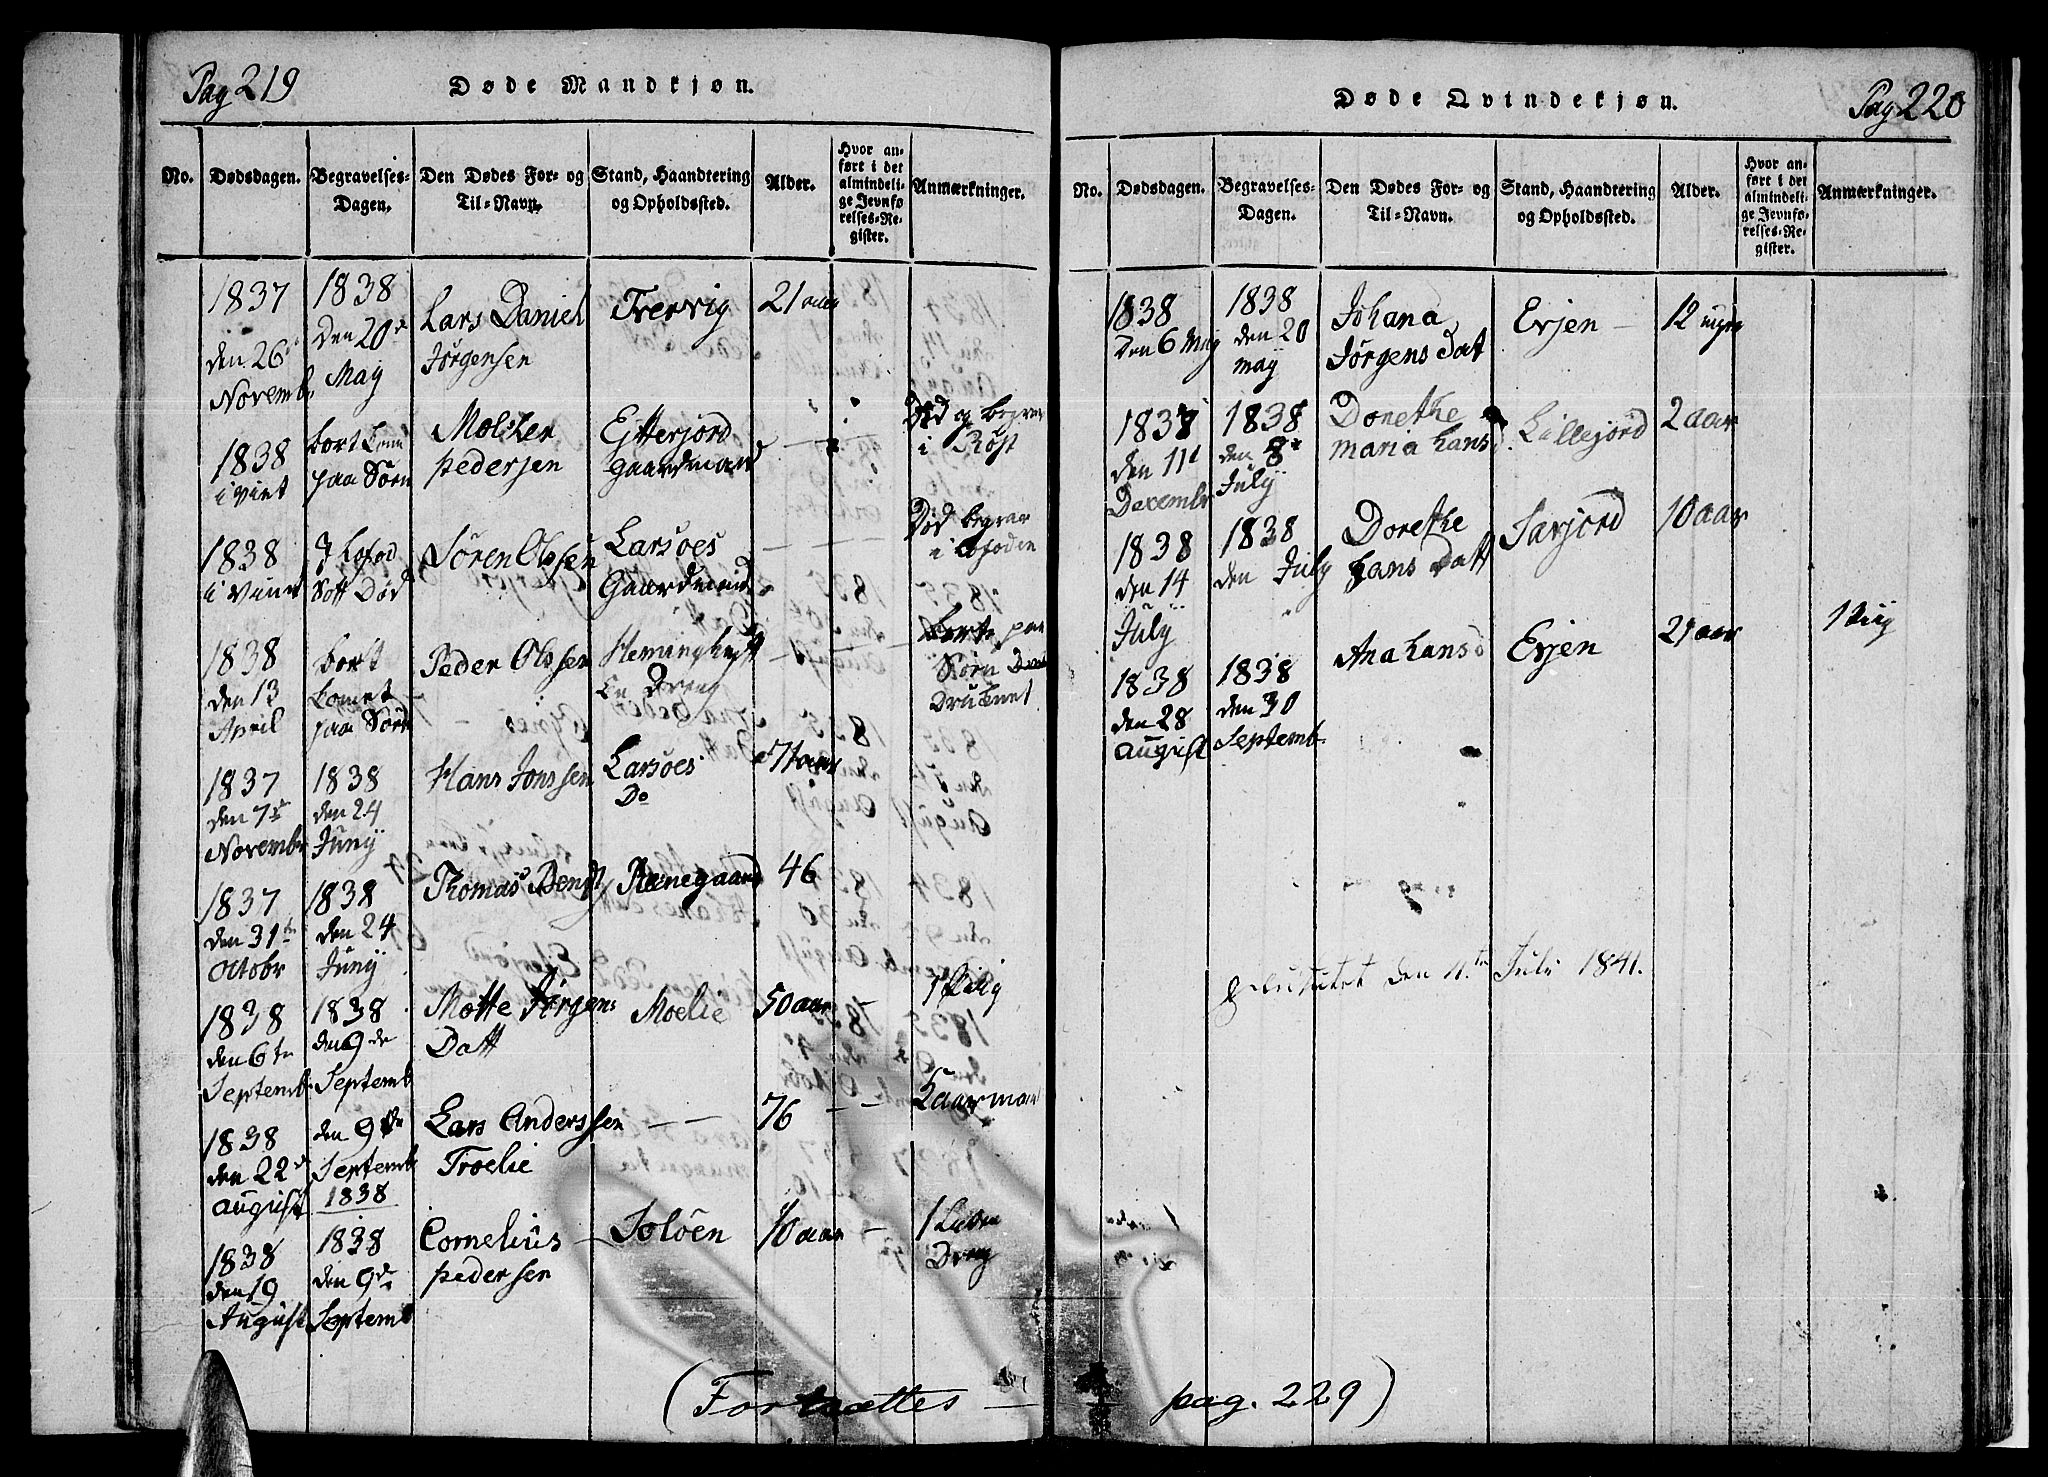 Pag 219
Døde Mandkjøn.
No.
Dødsdagen.
Begravelses-
Dagen.
Den Dødes For- og
Til-Navn.
Stand, Haandtering
og Opholdssted.
Alder.
Hvor an-
ført i det
almindeli-
ge Jevnfø-
relses-Re-
gister.
Anmærkninger.
1837
den 26
Novemb
1838
Den 20de
May
Lars Daniel
Jørgensen
Trervig
21 aar
1838
i vint
bort kom
paa Sörn
Molcher
pedersen
Ejtterjord
gaardmand
Død og begrav
i Röst
1838
i vint
J Lofod
Sott Död
Sören Olssen
Larsöes
Gaardmand
Död begrav
i Lofoden
1838
den 13
April
bort
komet
paa Sörn
Peder Olssen
En Dreng
borte paa
Sörn
Druknet
1837
den 7de
Novembr
1838
den 24
Junij
Hans Jonssen
Larsöes
Do
71 aar
1837
den 31te
Octobr
1838
den 24
Junij
Thomas
46
1838
den 6te
Septemb
1838
den 9de
Septemb
Motte Jørgens
Datt
Moelie
50 aar
1 Pige
1838
den 22de
august
den 9de
Septemb
1838
Lars Anderssen
Troelie
76
1838
den 19
August
1838
den 9de
Septemb
Cornelius
pedersen
Solöen
10 aar
1 Liden
Dreng
(Fortsættes —
Døde Qvindekjøn.
Pag 220
No.
Dødsdagen.
Begravelses-
Dagen.
Den Dødes For- og
Til-Navn.
Stand, Haandtering
og Opholdssted.
Alder.
Hvor an-
ført i det
almindeli-
ge Jevnfø-
relses-Re-
gister.
Anmærkninger.
1838
Den 6 May
1838
den 20
may
Johana
Jörgens Dat
Evjen
12 uger
1837
den 11te
Decembr
1838
den 8de
July
Dorethe
maria hansd
Lillejord
2 aar
1838
den 14
July
1838
den July
Dorethe
hans Datt
10 aar
1838
den 28
august
1838
den 30
Septemb
Ana hansd
Evjen
21 aar
1 Piig
Sluttet den 11te Juli 1841.
pag. 229)